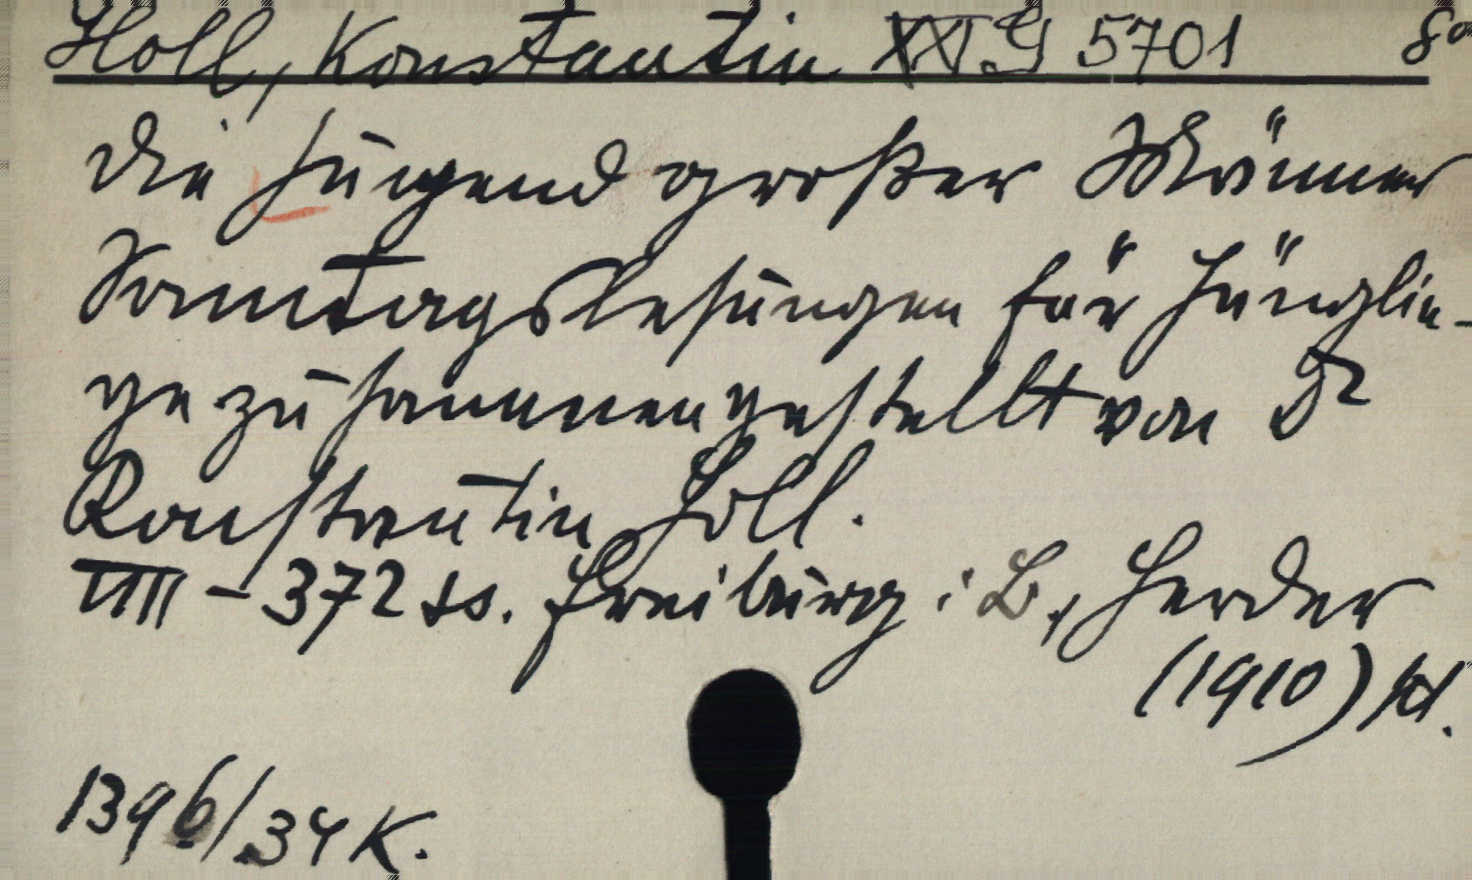 Holl, Konstantin XXI.G 5701 8°
Die Jugend großer Männer
Sonntagslesungen für Jünglin-
ge zusammengestellt von Dr
Konstantin Holl.
VIII - 372 ss. Freiburg i B., Herder
(1910)
1396/34 K.